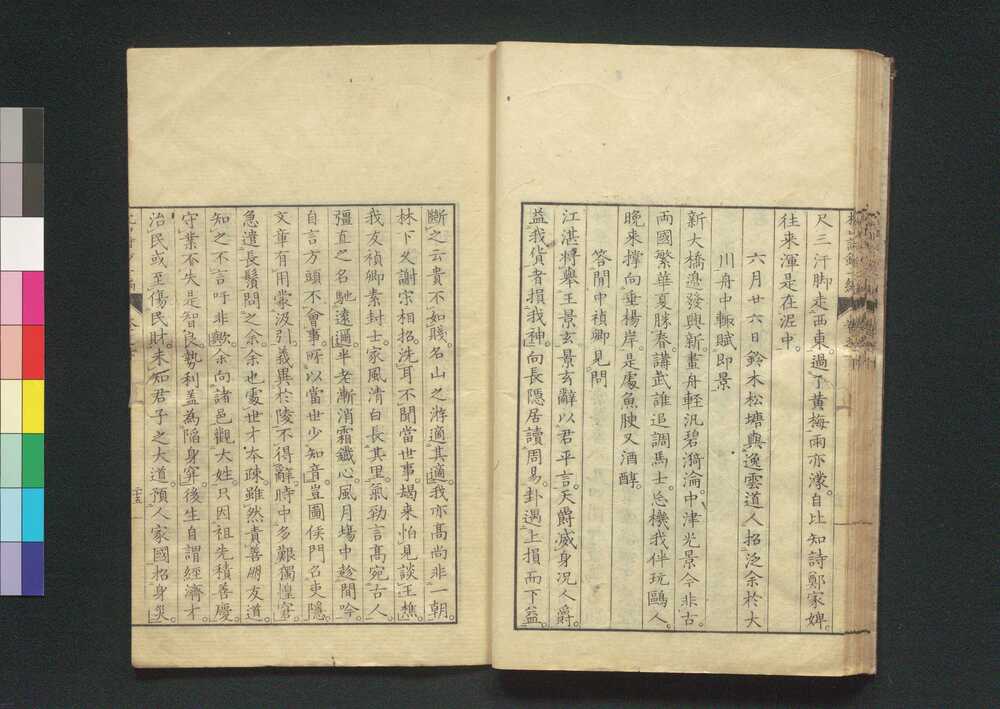 尺三汗脚走西東。過了黄梅雨亦濛。自比知詩鄭家婢。
往来渾是在泥中。
六月廿六日鈴木松塘与逸雲道人招泛余於大
川舟中輙賦即景
新大橋邊發興新畫舟輕汎碧漪淪。中津光景今非古。
両國繁華夏勝春。講武誰追調馬士。忘機我伴玩鷗人。
晩来撑向垂楊岸。是處魚腴又酒醇。
答閒中禎卿見問
江湛將舉王景玄景玄辭以君平言。天爵滅身況人爵。
益我貨者損我神。向長隠居讀周易。卦遇上損而下益。
斷之云貴不如賤。名山之游適其適。我亦高尚非一朝。
林下久謝宗相招。洗耳不聞當世事。朅来怕見談王樵。
我友禎卿素封士。家風清白長其里。氣勁言高宛古人。
彊直之名馳遠邇。半老漸消霜鐵心。風月場中趁閒吟。
自言方頭不會事。所以當世少知音。豈圖侯門名吏隠。
文章有用蒙汲引。義異於陵不得辭。時中多艱獨惶窘。
急遣長鬚問之余。余也處世才本疎。雖然責善朋友道。
知之不言吁非歟。余向諸邑觀大姓。只因祖先積善慶。
守業不失是智良。勢利盖為陥身穽。後生自謂經濟才。
治民或至傷民財。未知君子之大道。預人家國招身災。